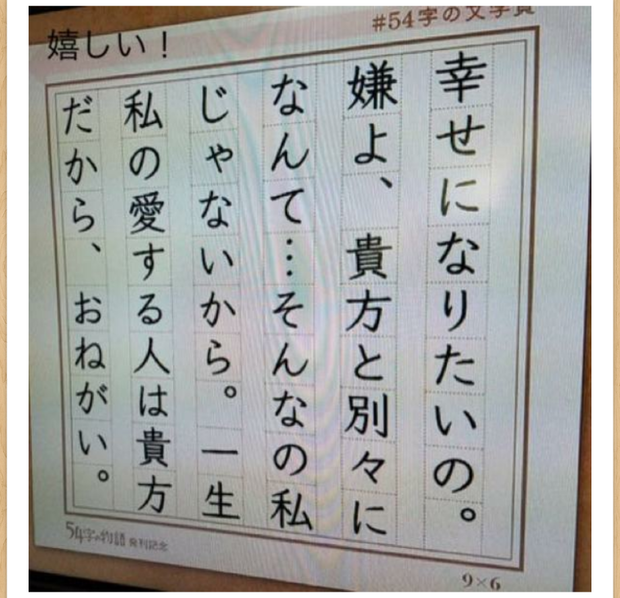 #54字の文学賞
嬉しい！
幸せになりたいの。
嫌よ、貴方と別々に
なんて…そんなの私
じゃないから。一生
私の愛する人は貴方
だから、おねがい。
54字の物語 発刊記念
9×6